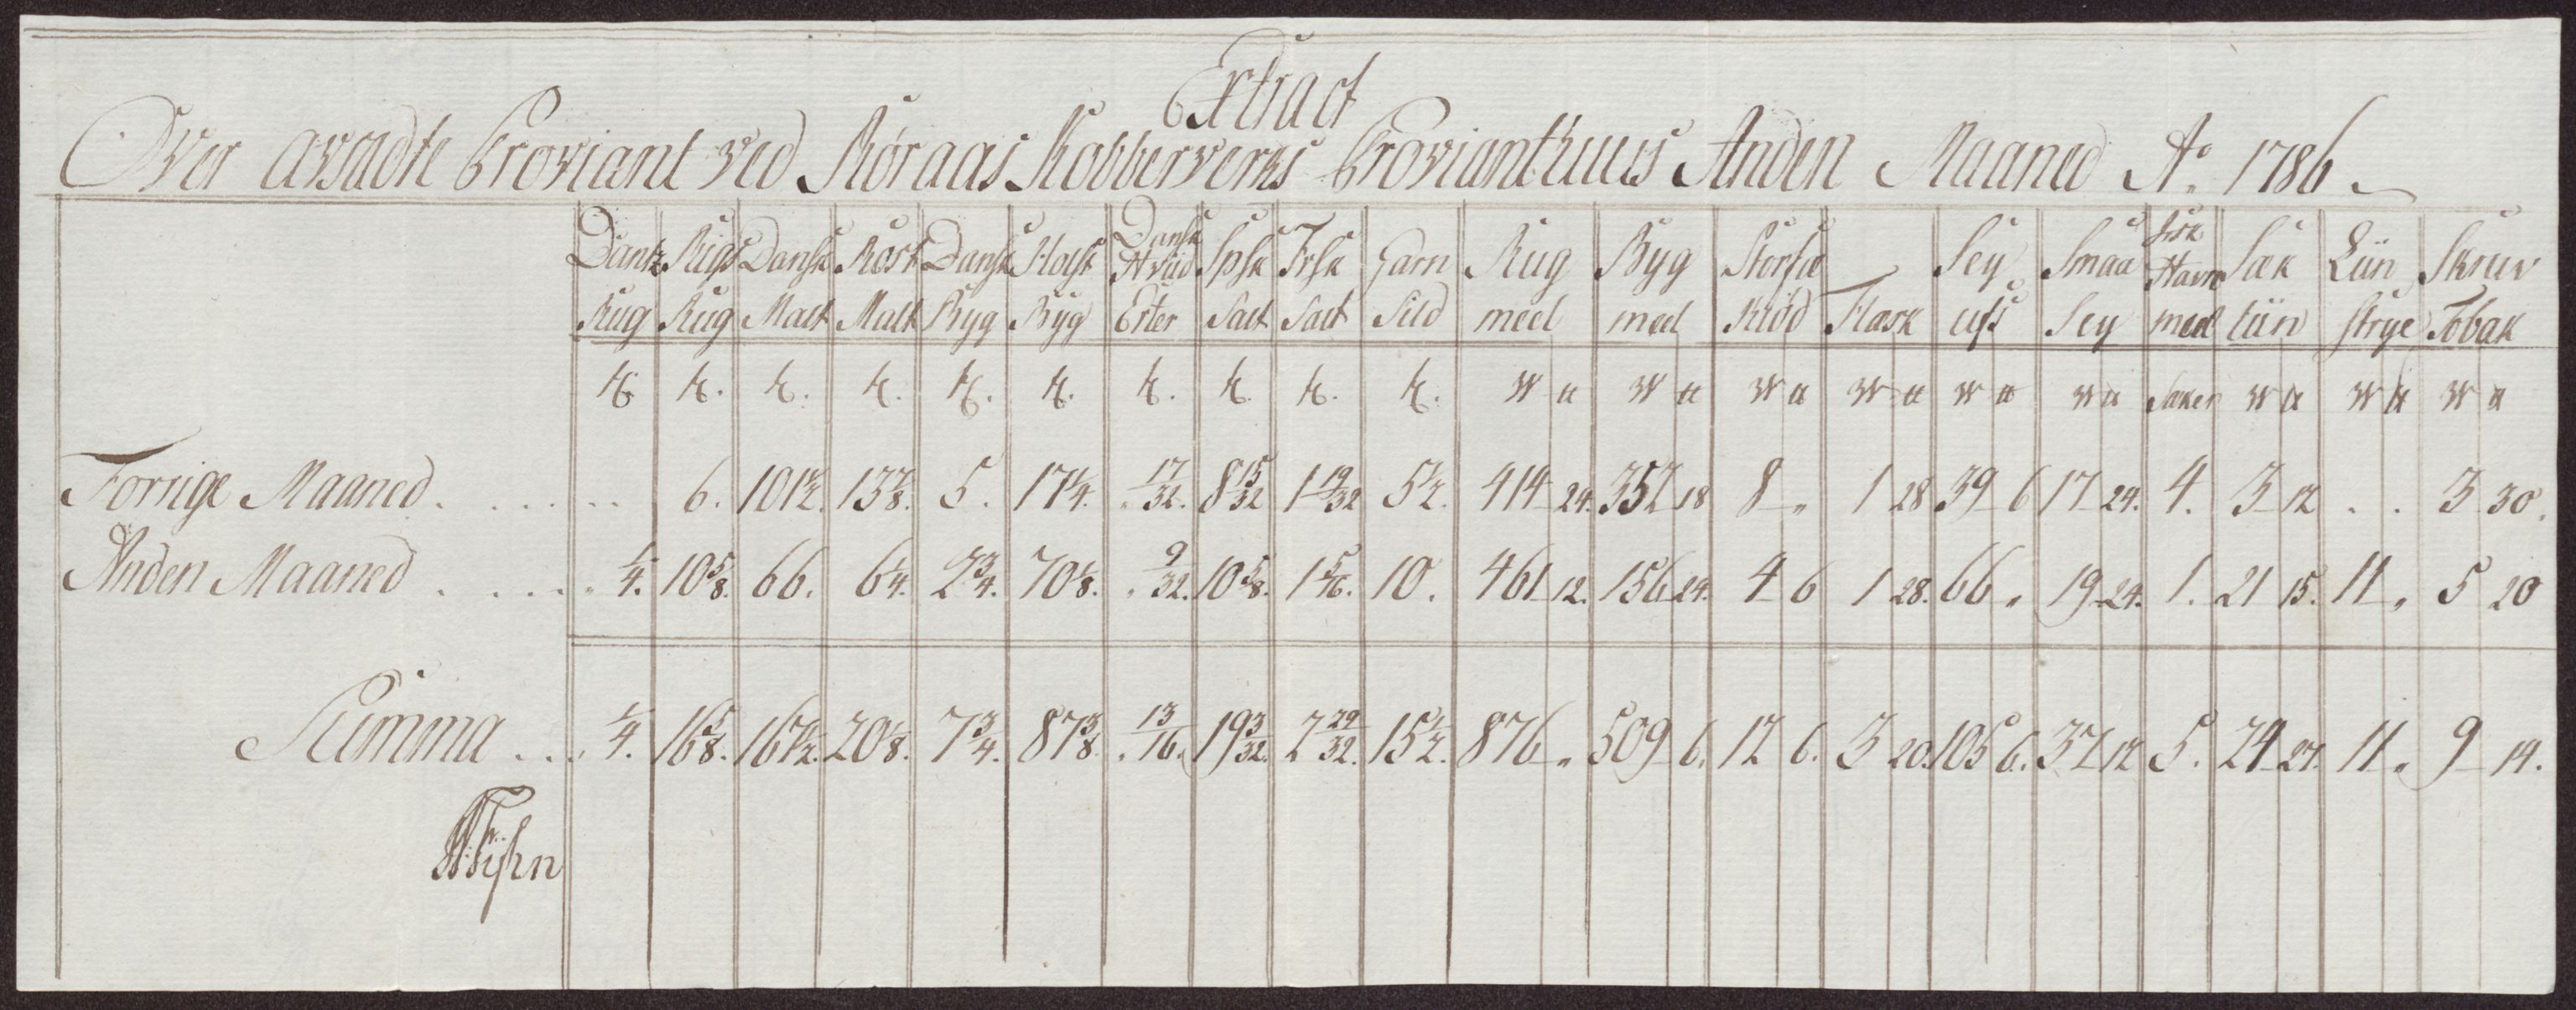 Extract
Over avsadte Proviant ved Röraas Kobberverks Provianthuus Anden Maaned Ao. 1786
Dantz Rug | Rigs Rug | Dansk Malt | Rost Malt | Dansk Byg | Holst Byg | Dansk Hviid Erter | Spsk Salt | Frsk Salt | Garn Sild | Rug meel | Byg meel | Storfæ Kiöd | Flæsk | Sey ufs | Smaa Sey | Irsk Havre meel | Sæk liin | Liin strye | Skruv Tobak
Sæker
Forrige Maaned . . . . . . 6. 101 1/2. 13 7/8. 5. 17 1/4. " 17/32. 8 15/32 1 19/32 5 1/2. 414 24. 352 18 8 " 1 28 39 6 17 24. 4. 3 12 . . 3 30.
Anden Maaned . . . . " 1/4. 10 5/8. 66. 6 1/4. 2 3/4. 70 1/8. " 9/32. 10 5/8. 1 5/16. 10. 461 12. 156 24. 4 6 1 28. 66 " 19 24. 1. 21 15. 11 " 5 20
Summa . . . 1/4. 16 5/8. 167 1/2. 20 1/8. 7 3/4. 87 3/8. " 13/16. 19 3/32. 2 29/32. 15 1/2. 876 " 509 6. 12 6. 3 20. 105 6. 37 12 5. 24 27. 11 " 9 14.